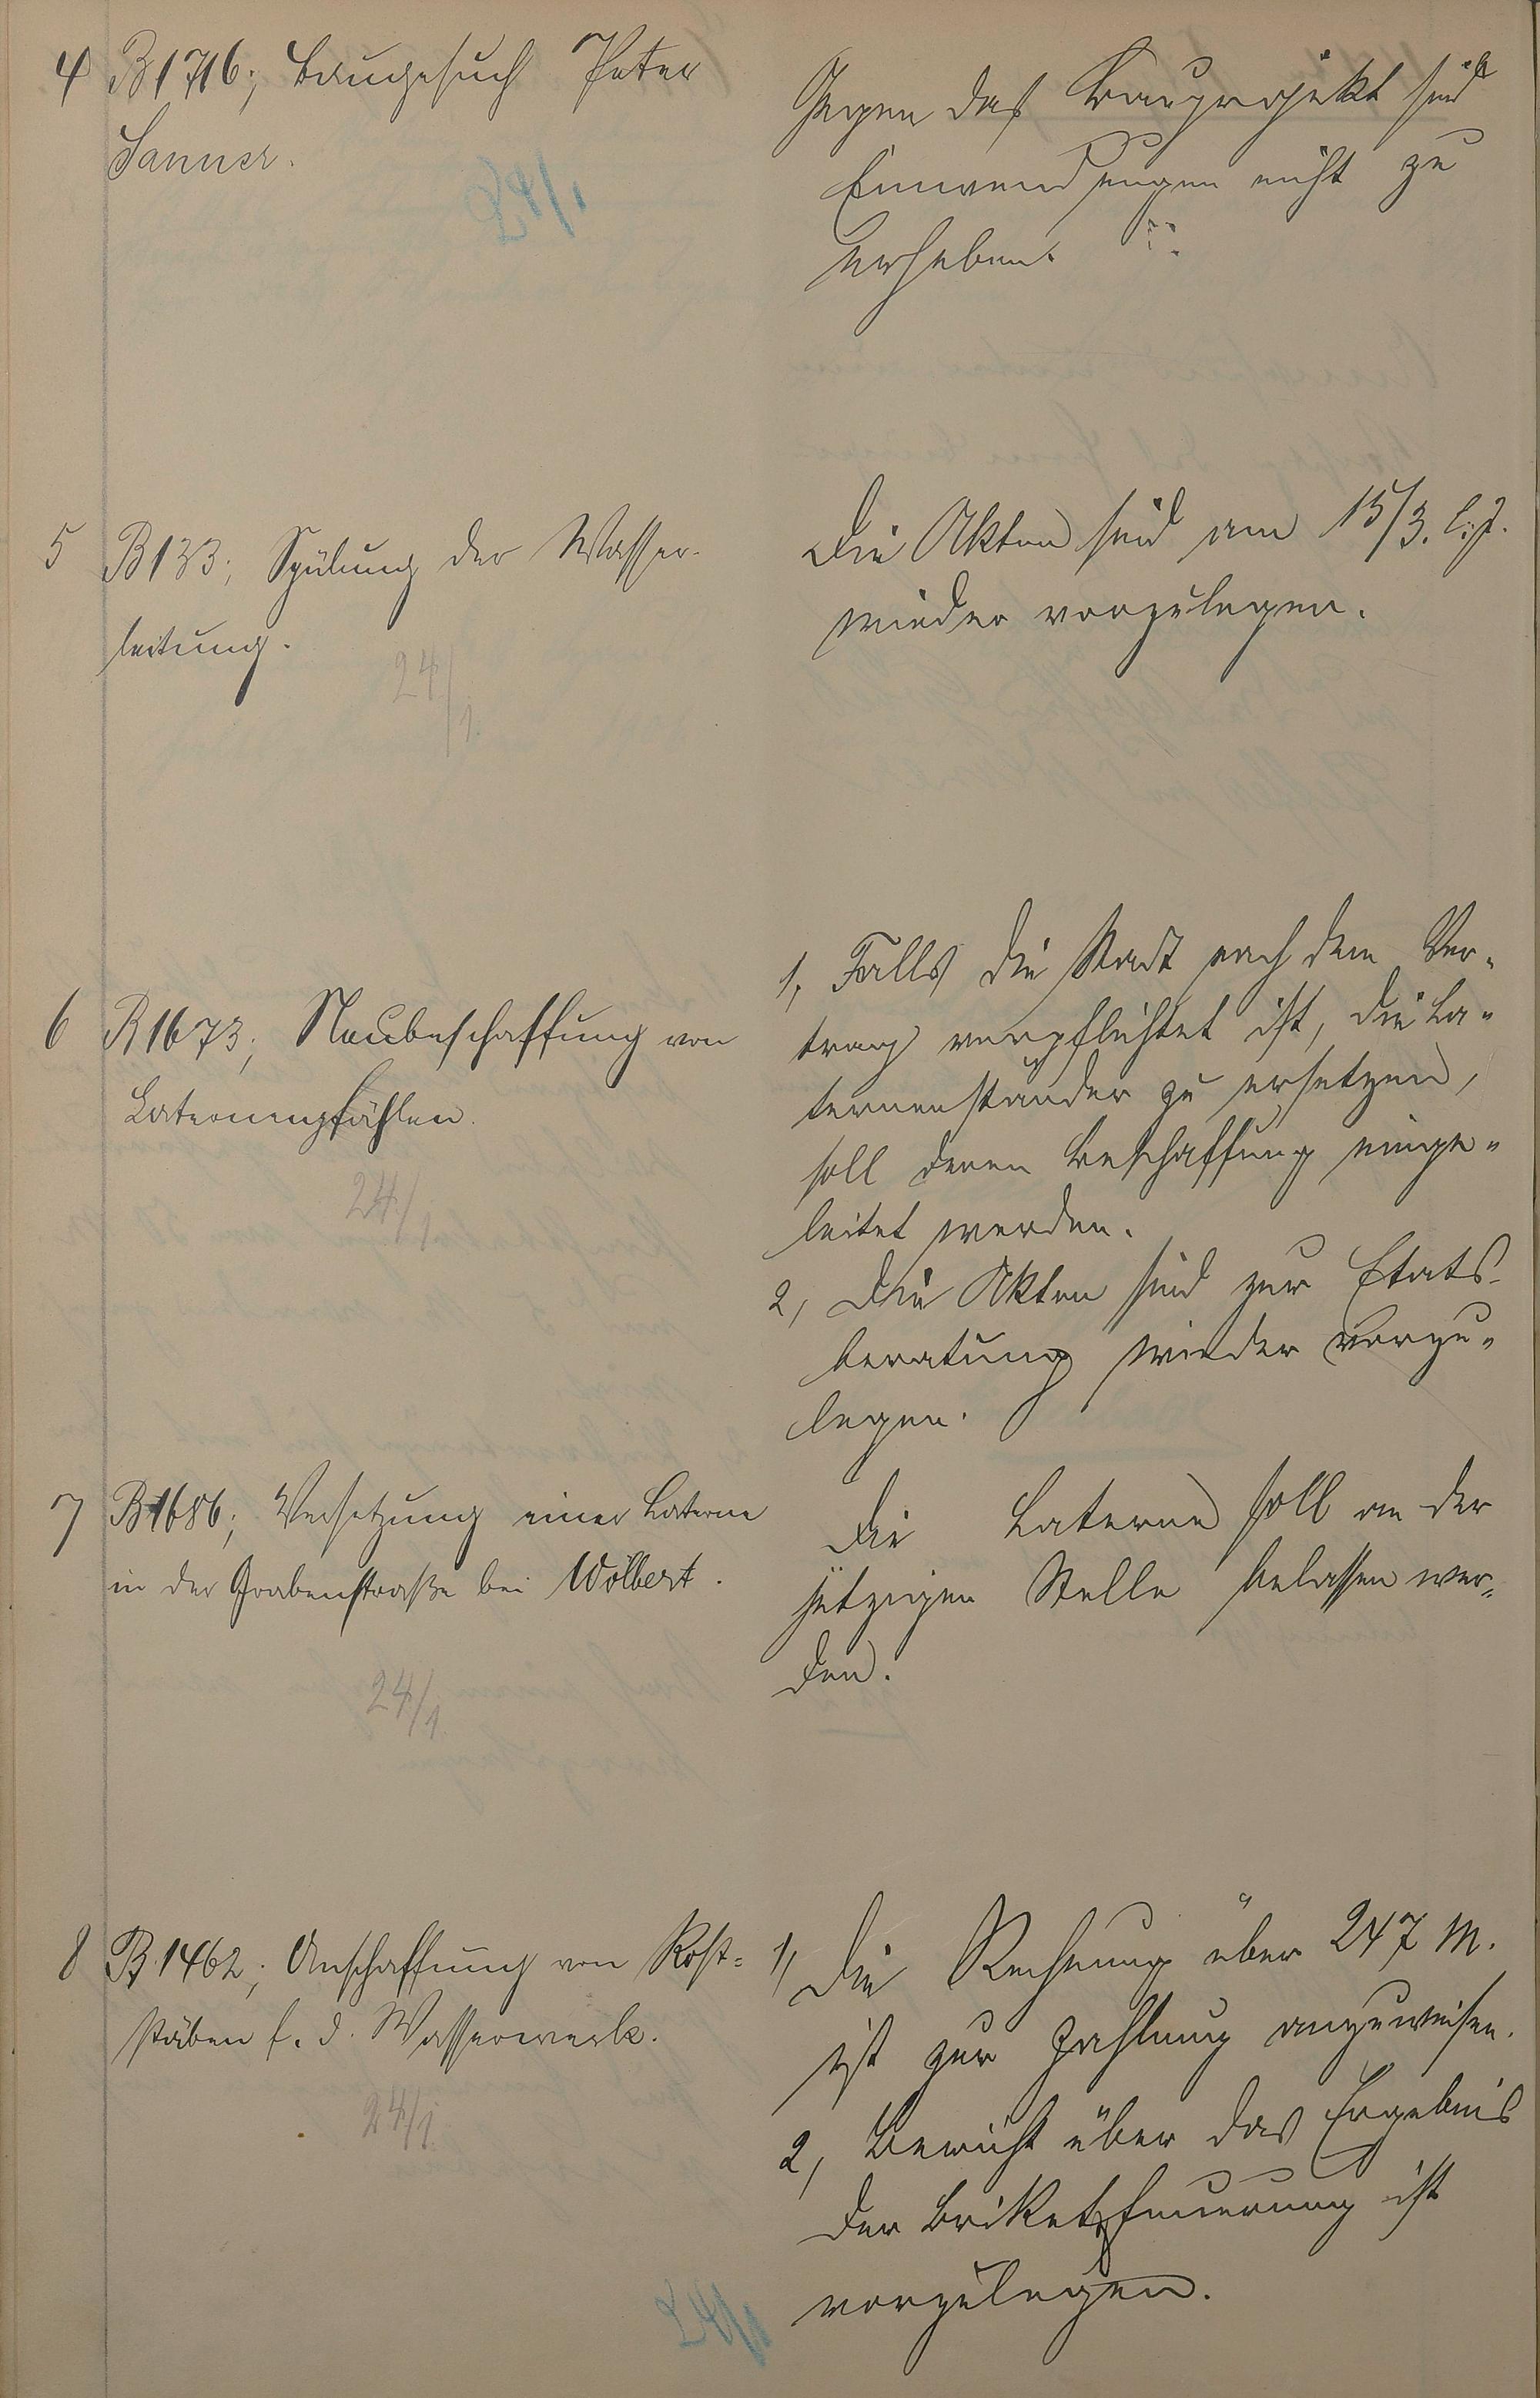 4 B1716; Baugesuch Peter
Sanner.
24/1
Gegen das Bauprojekt sind
Einwendungen nicht zu
erheben.
5 B133; Spülung der Wasser-
leitung.
24/1.
Die Akten sind am 15/3. l. J.
wieder vorzulegen.
6 B1673; Neubeschaffung von
Laternenpfählen.
24/1.
1, Falls die Stadt nach dem Ver-
trag verpflichtet ist, die La-
ternenständer zu ersetzen,
soll deren Beschaffung einge-
leitet werden.
2, Die Akten sind zur Etats-
beratung wieder vorzu-
legen.
7 B1686; Versetzung einer Laterne
in der Grabenstraße bei Wölbert.
24/1.
Die Laterne soll an der
jetzigen Stelle belassen wer-
den.
8 B1462; Anschaffung von Rost-
stäben f. d. Wasserwerk.
24/1.
1, Die Rechnung über 247 M.
ist zur Zahlung anzuweisen.
2, Bericht über das Ergebnis
der Briketfeuerung ist
vorzulegen.